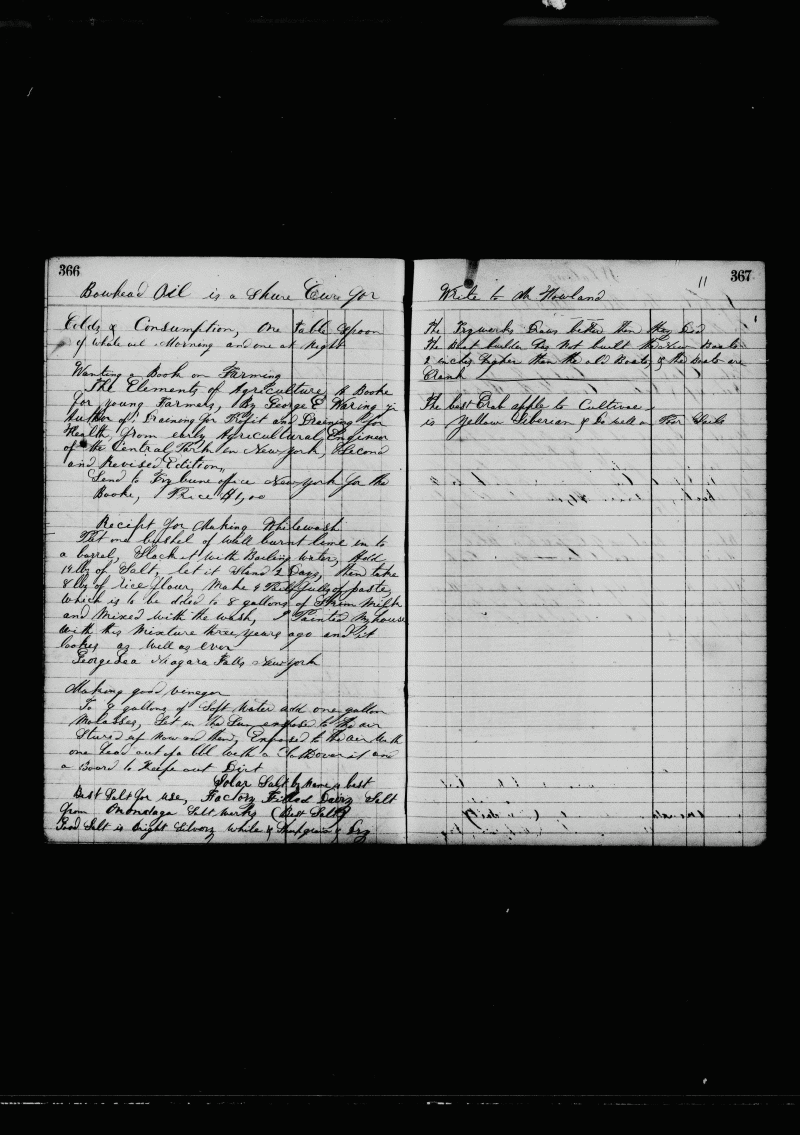 366
Bowhead Oil is a Shure Cure for
Colds & Consumption, One table Spoon
of Whale oil Morning and one at Night
Wanting a Book on Farming
The Elements of Agriculture, A Booke
for young Farmers, By George E Waring jr
Author of; Draining for Profit and Draining for
Health, from early Agricultural Engineer
of the Central Park in New york, Second
and Revised Edition,,
Send to Trybune office New york for the
Booke, Price $1,00
Receipt for Making Whitewash
Put one bushel of well burnt lime in to
a barral, Slack it with Boiling Water, Add
lby of Salt, let it Stand 2 Days, then take
8 lby of rice flour, Make 4 Pails fully of paste,
Which is to be dded to 8 gallons of Skim Milk
and Mixed with the wash, I Painted My house
With this Mixture three years ago and it
lookes as well as ever
George Niagara Falls New york
Making good vinegar
To 9 gallons of Soft Water add one gallon
Molasses, Set in the Sun exspose to the air
Stured up Now and then, Exposed to the air With
one head out of a bbl With a Cloth over it and
a Board to Keepe out Dirt
Solar Salt by Name is best
Best Salt for use, Factory Filled Dairy Salt
from Onondaga Salt Works (Best Salt)
Good Salt is bright Silvery White & Sharp grain & Dry
367
11
Write to M Howland
The Tryworks Draws better then they Did
The Boat builder Des Not built the New Boats
2 inches Higher than the old Boats, & the Boats are
Crank
The best Crab apple to Cultivae
is Yellow Siberian & Do well on Poor Soils